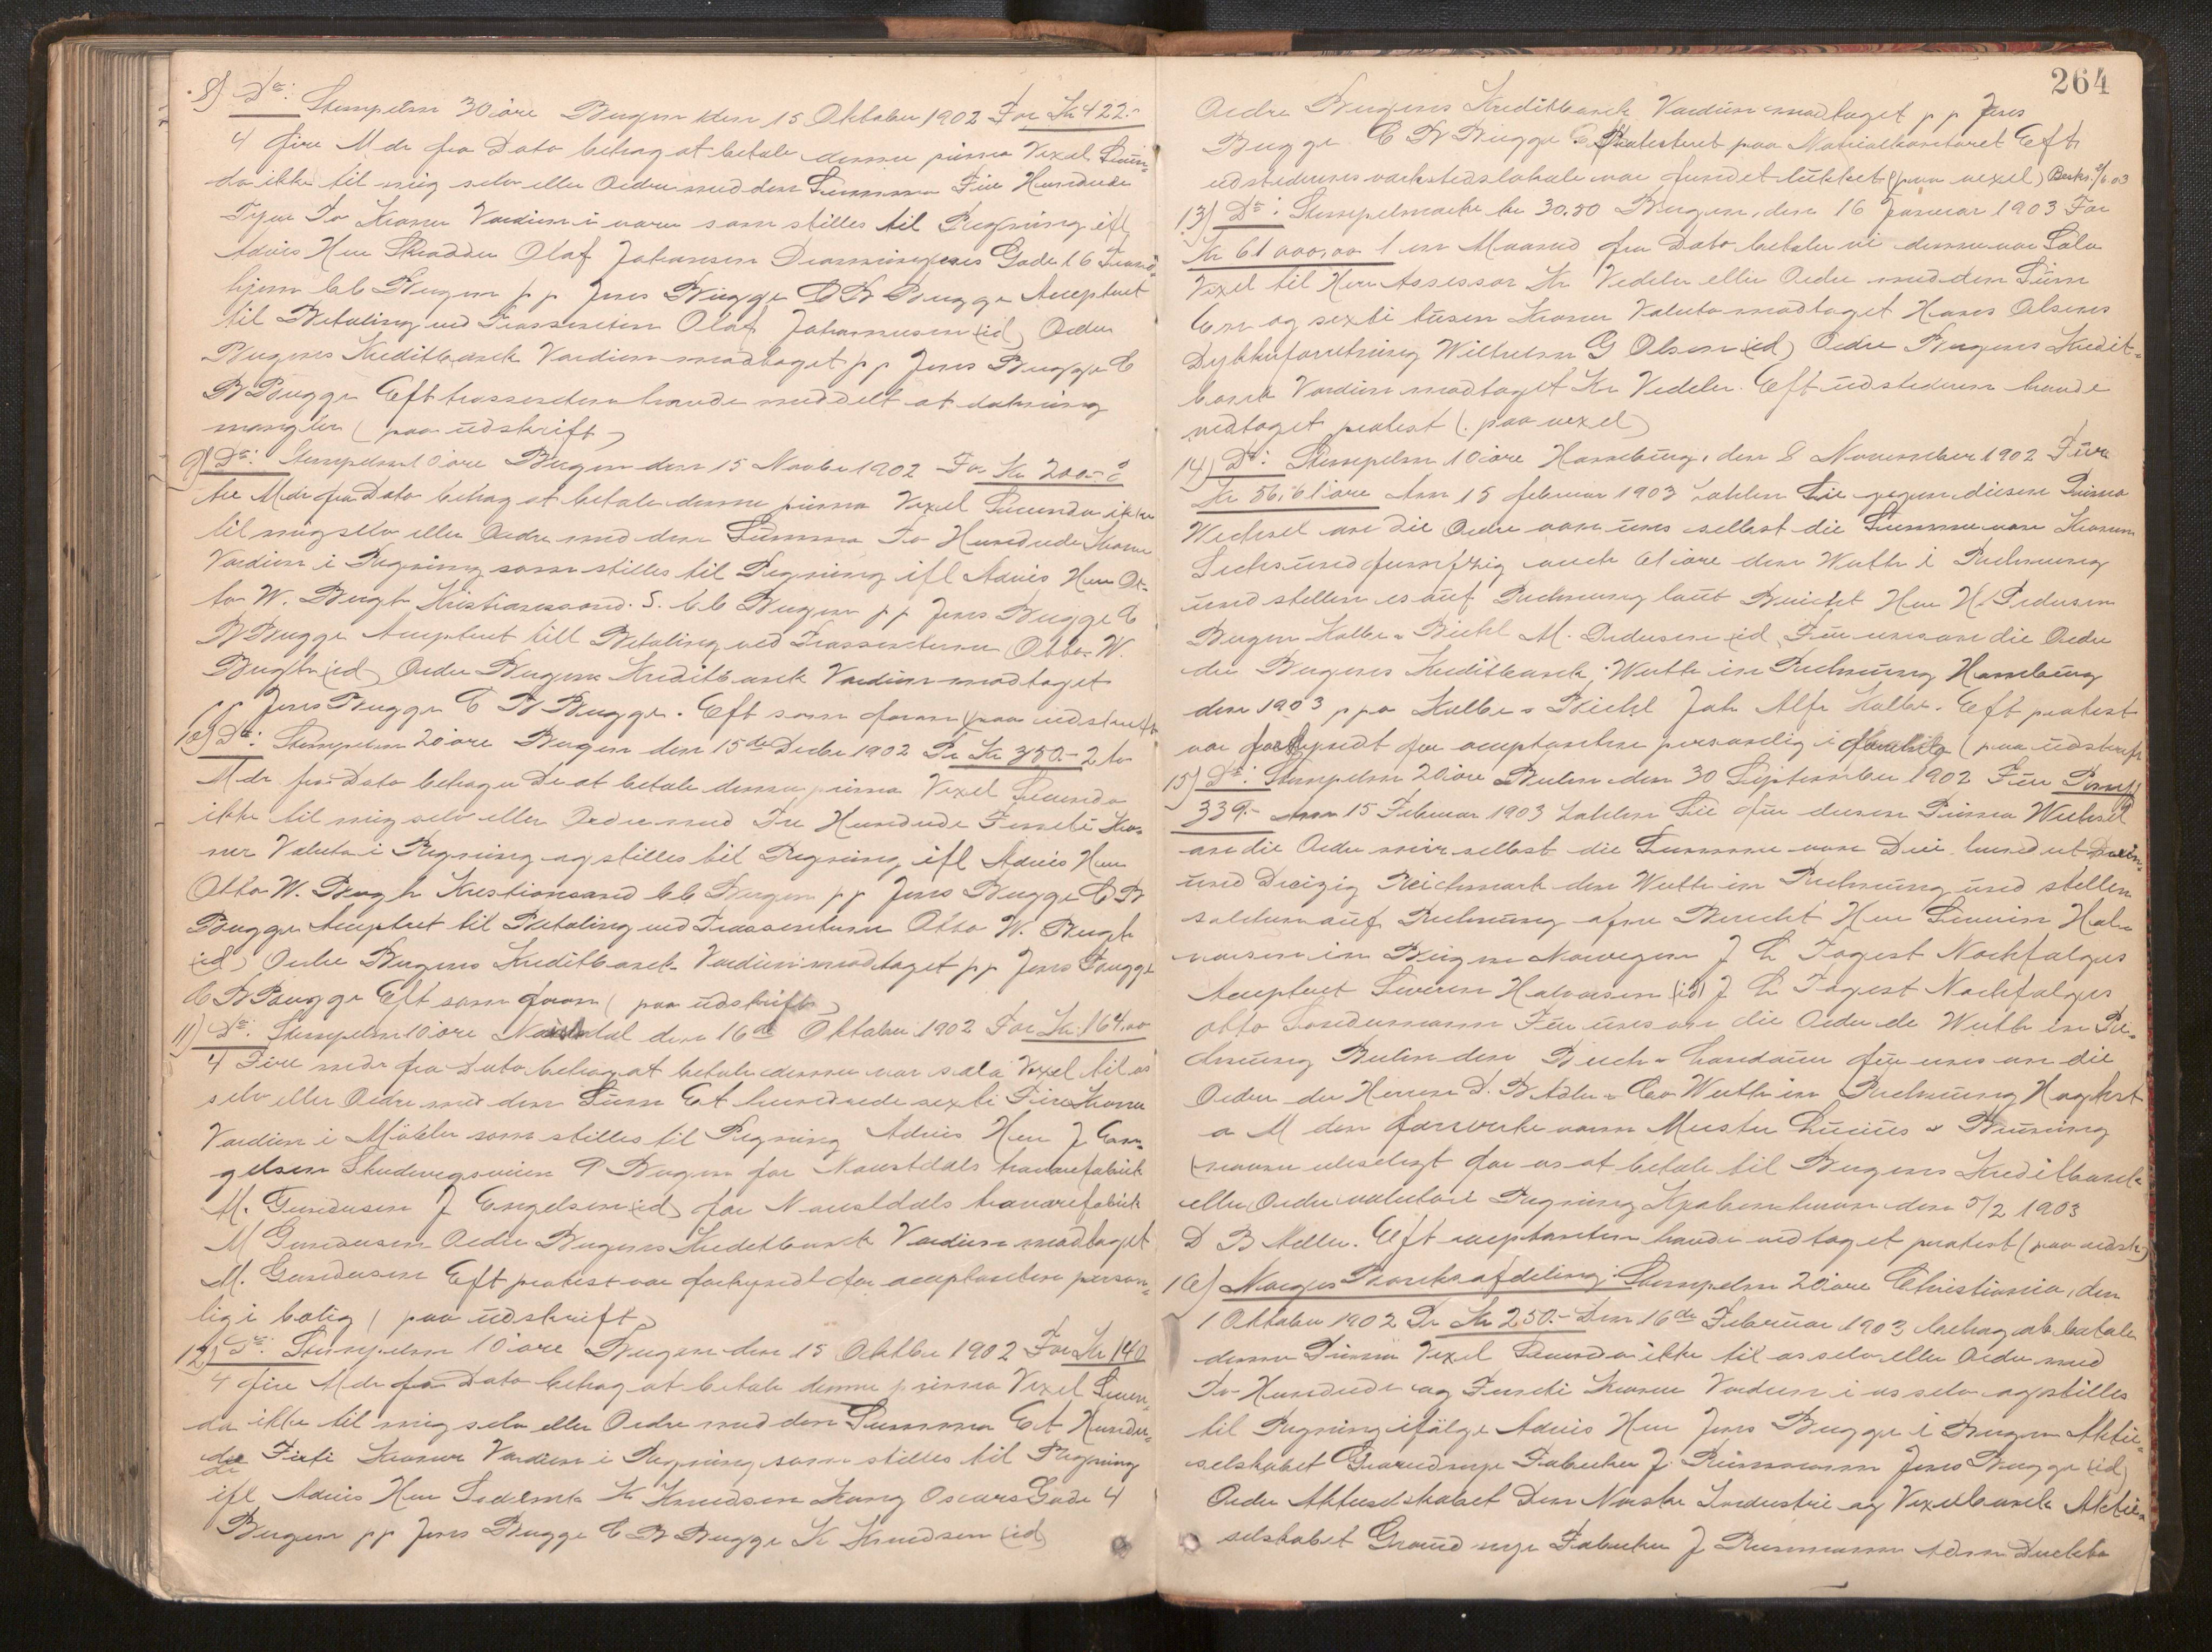 8) Do: Stempelm 30 öre Bergen den 15 Oktober 1902 For Kr 422.-
4 fire Mdr fra Dato behag at betale denne prima Vexel Secun-
da ikke til mig selv eller Ordre med den Summa Fire Hundrede
Tyve To Kroner Værdien i varer som stilles til Regning ifl
Advis Herr Skrædder Olaf Johansen Dronningens Gade 16 Trond-
hjem bb Bergen pp Jens Bugge C B Bugge Accepteret
til Betaling ved Trassenten Olaf Johannesen (id) Ordre
Bergens Kreditbank Værdien modtaget pp Jens Bugge C
B Bugge Eft trassenten havde meddelt at dækning
mangler (paa udskrift)
9) Do: Stempelm 10 öre Bergen den 15 Novbr 1902 For Kr 200.- 3
tre Mdr fra Dato behag at betale denne prima Vexel Secunda ikke
til mig selv eller Ordre med den Summa To Hundrede Kroner
Værdien i Regning som stilles til Regning ifl Advis Herr Ot-
to W. Bergh Kristianssand. S. bb Bergen pp Jens Bugge C
B Bugge Accepteret till Betaling ved Trassenterne Otto W.
Bergh (id) Ordre Bergens Kreditbank Værdien modtaget
pp Jens Bugge C B Bugge. Eft som foran (paa udskrift
10) Do: Stempelm 20 öre Bergen den 15de Decbr 1902 Pr Kr 350.- 2 to
Mdr fra Dato behager De at betale denne prima Vexel Secunda
ikke til mig selv eller Ordre med Tre Hundrede Femti Kro-
ner Valuta i Regning og stilles til Regning ifl Advis Herr
Otto W. Bergh Kristianssand bb Bergen pp Jens Bugge C B
Bugge Accepteret til Betaling ved Trassenterne Otto W. Bergh
(id) Ordre Bergens Kreditbank Værdien modtaget pp Jens Bugge
C B Bugge Eft som foran (paa udskrift)
11) Do: Stempelm 10 öre Naustdal den 16de Oktober 1902 For Kr. 164,00
4 Fire mdr fra Dato behag at betale denne vor sola Vexel til os
selv eller Ordre med den Sum Et hundrede sexti Fire Kroner
Værdien i Möbler som stilles til Regning Advis Herr J En-
gelsen 9 Bergen for Naustdals trævarefabrik
M. Gundersen J Engelsen (id) for Naustdals trævarefabrik
M Gundersen Ordre Bergens Kreditbank Værdien modtaget
M. Gundersen Eft protest var forkyndt for acceptanten person-
lig i bolig (paa udskrift)
12) Do: Stempelm 10 öre Bergen den 15 Oktbr 1902 For Kr 140
4 fire Mdr fra Dato behag at betale denne prima Vexel Secun-
da ikke til mig selv eller Ordre med den Summa Et Hundre-
de Firti Kroner Værdien i Regning som stilles til Regning
ifl Advis Herr K Knudsen Kong Oscars Gade 4
Bergen pp Jens Bugge C B Bugge K Knudsen (id)
264
Ordre Bergens Kreditbank Værdien modtaget pp Jens
Bugge C B Bugge Protesteret paa Notarialkontoret Eft
udstederens værkstedslokale var fundet lukket (paa vexel)
13) Do: Stempelmærke kr 30.50 Bergen, den 16 Januar 1903 For
Kr 61 000,00 1 en Maaned fra Dato betaler vi denne vor Sola
Vexel til Herr Assessor Kr Vedeler eller Ordre med den Sum
En og sexti tusen Kroner Valuta modtaget Hans Olsens
Dykkerforretning Wilhelm G Olsen (id) Ordre Bergens Kredit-
bank Værdien modtaget Kr Vedeler. Eft udstederen havde
vedtaget protest (paa vexel)
14) Do: Stempelm 10 öre Hamburg, den 8 November 1902 Für
Kr 56,61 öre Am 15 februar 1903 zahlen Sie gegen diesen Prima
Wechsel an die Ordre von uns selbst die Summe von Kronen
Sechsundfunfzig auch 61 öre den Werth i Rechnung
und stellen es auf Rechnung laut Bericht Herr H. Pedersen
Bergen Kolbe & Biehl M. Pedersen (id) Für uns an die Ordre
der Bergens Kreditbank, Werth in Rechnung Hamburg
den 1903 ppa Kolbe & Biehl Joh Alfr Kolbe. Eft protest
var forkyndt for acceptanten personlig i (paa udskrift
15) Do: Stempelm 20 öre Berlin den 30 September 1902 Für
339.- Am 15 Februar 1903 zahlen Sie für diesen Prima Wechsel
an die Ordre mir selbst die Summe von Drei hundert Neun-
und Dreizig Reichmark den Werth in Rechnung und stellen
solchen auf Rechnung ohne Bericht Herr Severin Hal-
vorsen in Bergen Norwegen J C Togest Nachfolger
Accepteret Severin Halvorsen (id) J C Togest Nachfolger
Otto Für uns an die Ordre de Werth in Re-
chnung Berlin den für uns an die
Ordre der Herren D. B Adler & Co Werth in Rechnung Höchst
a M den farwerke vorm Meister Lucius & Brüning
for os at betale til Bergens Kreditbank
eller Ordre valuta i Regning Kjøbenhavn den 5/2 1903
D B Adler. Eft acceptanten havde vedtaget protest (paa udskr)
16) Norges Banks afdeling: Stempelm 20 öre Christiania, den
1 Oktober 1902 Pr Kr 250.- Den 16de Februar 1903 behag at betale
denne Prima Vexel Secunda ikke til os selv eller Ordre med
To Hundrede og Femti Kroner Værdien i os selv og stilles
til Regning ifølge Advis Herr Jens Bugge i Bergen Aktie-
selskabet Grorud nye Fabriker J. Reimann Jens Bugge (id)
Ordre Aktieselskabet Den Norske Industrie og Vexelbank Aktie-
selskabet Grorud nye Fabriker J Reimann